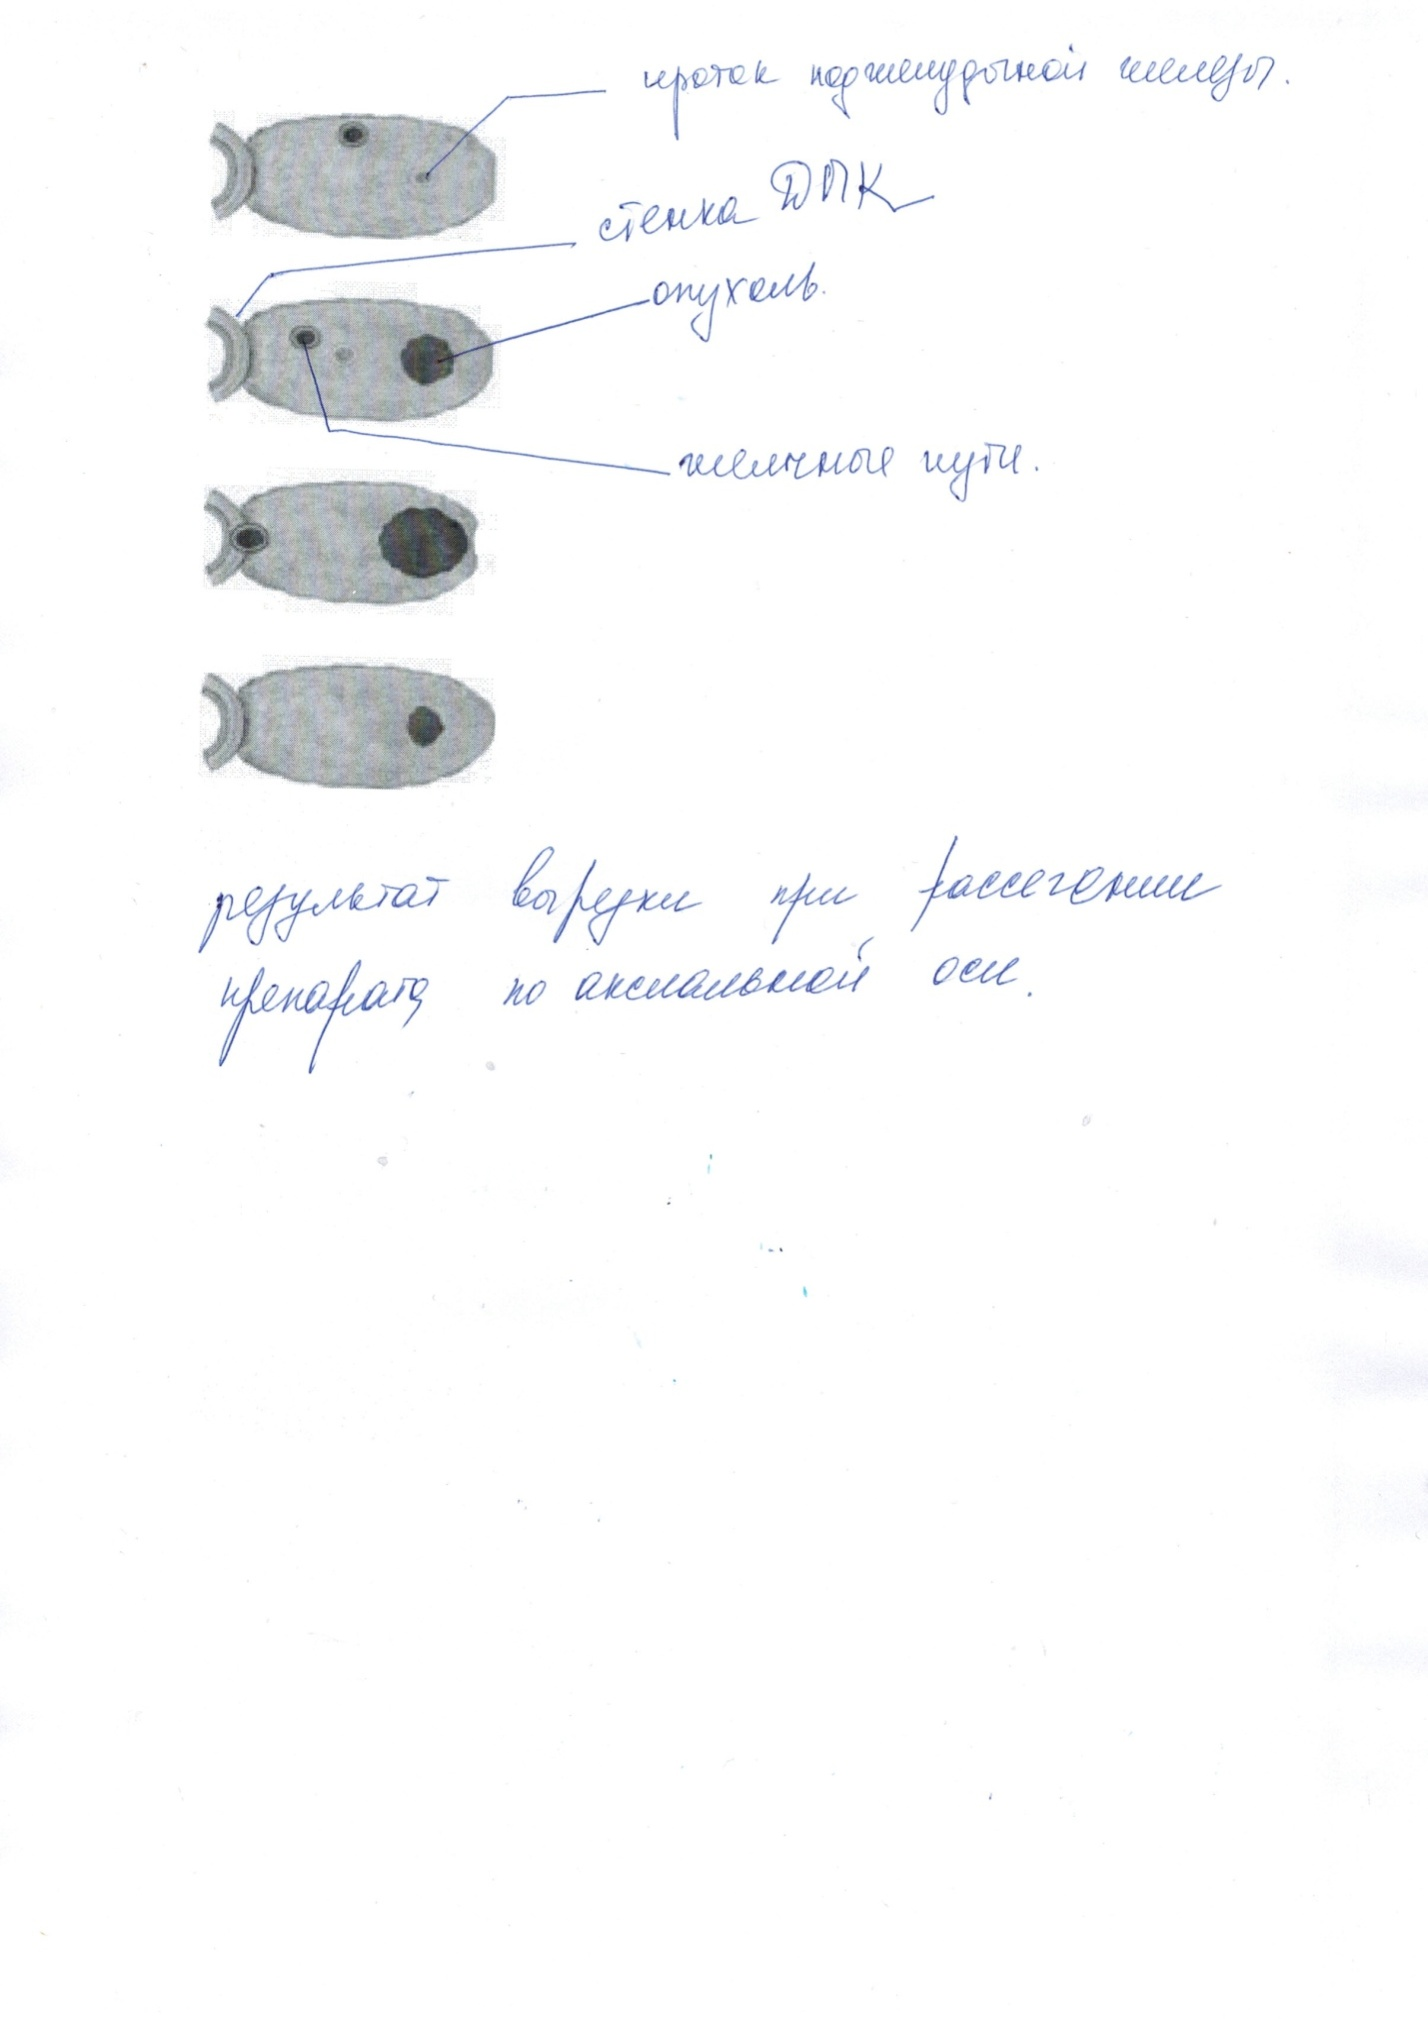 проток поджелудочной железы.
стенка ДПК
опухоль.
желчные пути.
результат вырезки при рассечении
препарата по аксиальной оси.